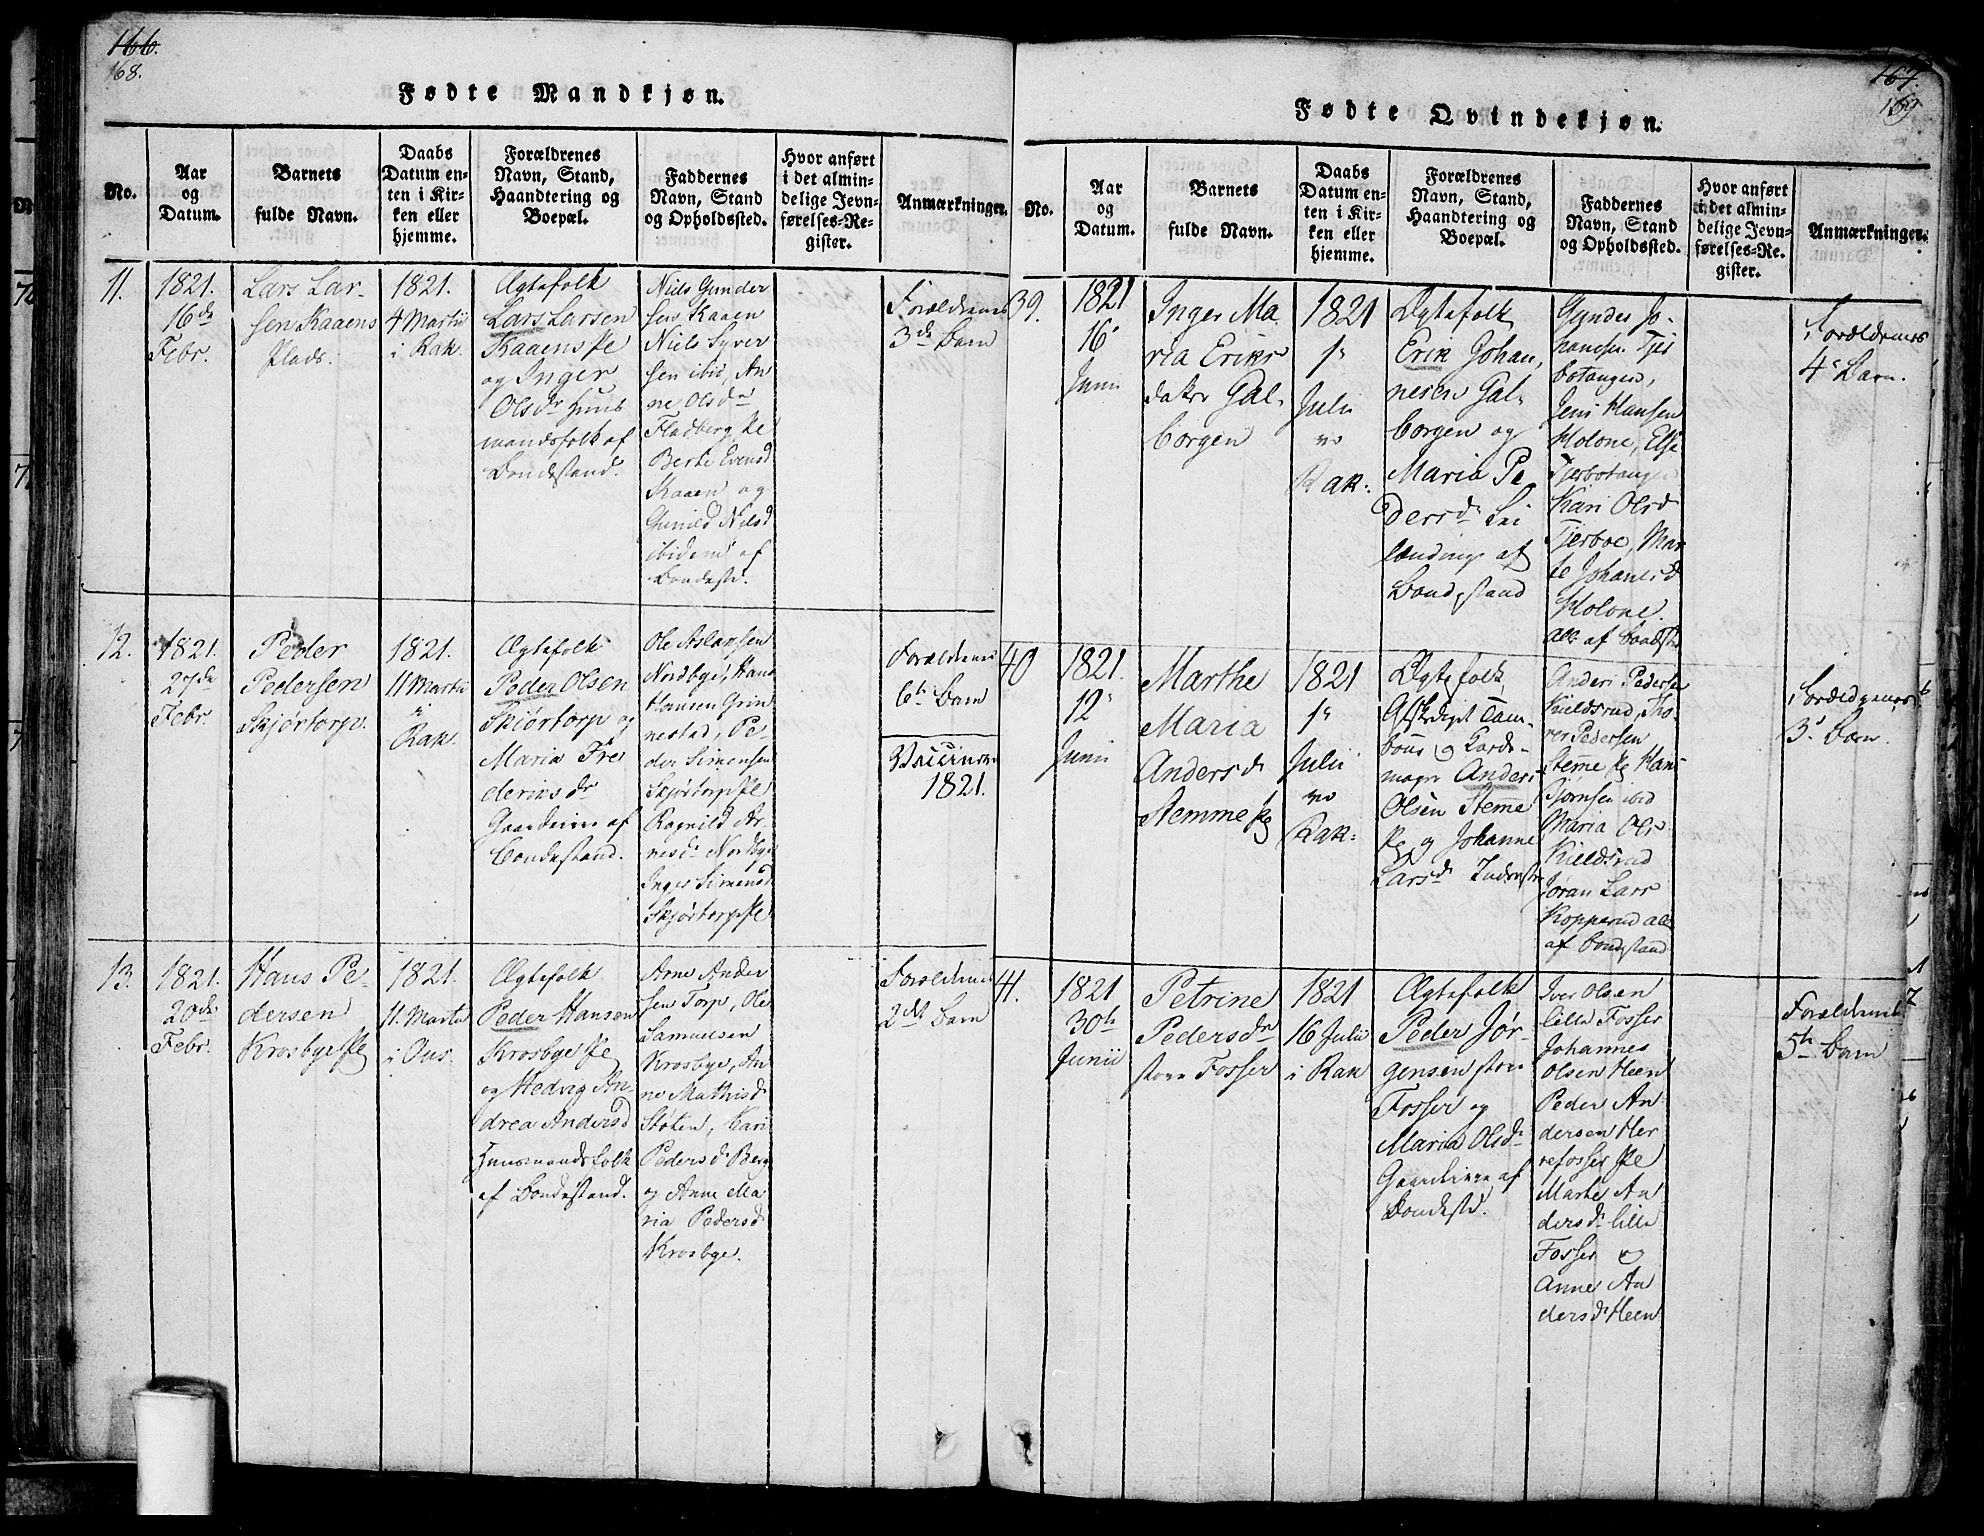 166.
168.
Fødte Mandkjøn.
No.
Aar
og
Datum.
Barnets
fulde Navn.
Daabs
Datum en-
ten i Kir-
ken eller
hjemme.
Forældrenes
Navn, Stand,
Haandtering og
Boepæl.
Faddernes
Navn, Stand
og Opholdssted.
Hvor anført
i det almin-
delige Jevn-
førelses-Re-
gister.
Anmærkninger.
11.
1821.
16de
Febr.
Lars Lar-
sen Kaaens
Plads.
1821.
4 Martii
i Rak.
Ægtefolk
Lars Larsen
Kaaens Pe
og Inger
Olsdr Huus
mandsfolk af
Bondestand.
Niels Gunder
sen Kaaen
Niels Syver
sen ibid, An
ne Olsdr
Fladberg Pe
Berte Evensd
Kaaen og
Gunild Nielsd
ibidem af
Bondestd.
Forældrenes
3de Barn
12.
1821.
27de
Febr.
Peder
Pedersen
Skjørtorp.
1821.
11 Martii
i
Rak.
Ægtefolk
Peder Olsen
Skiørtorp og
Maria Fre
deriksdr
Gaardeiere af
Bondestand.
Ole Aslaksen
Nordbye, Hans
Hansen Grim
nestad, Pe-
der Simensen
Skjørtorp Pe
Ragnild Ar
nesdr Nordbye
Inger Simensd
Skjørtorp Pe
Forældrenes
6te Barn
1821.
13.
1821.
20de
Febr.
Hans Pe-
dersen
Krosbye Pe
1821.
11. Martii
i Ous.
Ægtefolk
Peder Hansen
Krosbye Pe
og Hedvig An-
drea Andersd
Huusmandsfolk
af Bondestand.
Arne Ander
sen Torp, Ole
Samuelsen
Krosbye, An
ne Mathisd
Støten, Kari
Pedersdr Berg
og Anne Ma
ria Pedersd
Krosbye.
Forældrenes
2det Barn
167.
169
Fødte Qvindekjøn.
No.
Aar
og
Datum.
Barnets
fulde Navn.
Daabs
Datum en-
ten i Kir-
ken eller
hjemme.
Forældrenes
Navn, Stand,
Haandtering og
Boepæl.
Faddernes
Navn, Stand
og Opholdssted.
Hvor anført
i det almin-
delige Jevn-
førelses-Re-
gister.
Anmærkninger.
39.
1821
16
Junii
Inger Ma
ria Eriks
datter Gal-
borgen
1821
1
Julii
Rak:
Ægtefolk
Erik Johan,
nesen Gal-
borgen og
Maria Pe
dersdr Lei
lændinge af
Bondestand
Gunder Jo-
hansen Tjer
botangen,
Jens Hansen
Holone, Else
Tjerbotangen
Kari Olsd
Tjerboe, Mar
te Johanesd
Holone.
alle af Bondestd
Forældrenes
4 Barn.
40
1821.
12
Junii
Marthe
Maria
Andersdr
Stemme Pe
1821
1
Julii
Rak:
Ægtefolk,
Afskediget Tam-
bour og Garde-
mager Anders
Olsen Stemme
Pe og Johanne
Larsdr
Anders Pedersen
Kieldsrud, Tho-
res Pedersen
Stemme Pe Hans
Bjørnsen ibid
Maria Ols
Kieldsrud
Jøran Lars
Kopperud alle
af Bondestand
Forældrenes
3 Barn.
41.
1821
30te
Junii
Petrine
Pedersdr
store Fosser
1821
16 Julii
i Rak
Ægtefolk
Peder Jør-
gensen store
Fosser og
Maria Olsdr
Gaardeiere af
Bondestd.
Iver Olsen
lille Fosser
Johannes
Olsen Heen
Peder An
dersen Her
refosser Pe
Marte An
dersdr lille
Fosser og
Anne An
dersdr Heen
Forældrenes
5te Barn